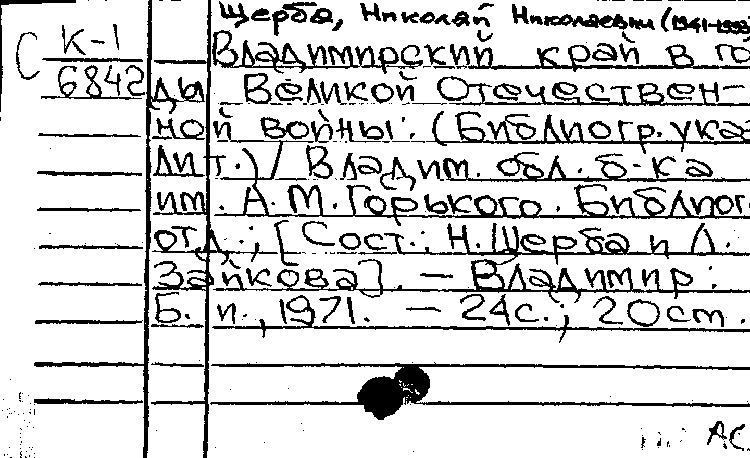 Щерба, Николай Николаевич (1941-1993
С К-1
6842
Владимирский край в го
ды Великой Отечествен-
ной войны: (Библиогр. указ
лит.) / Владим. обл. б-ка
им. А.М. Горького. Библиог.
отд.; [Сост.: Н. Щерба и Л.
Зайкова]. — Владимир:
Б. и., 1971. — 24с.; 20 см.
АС